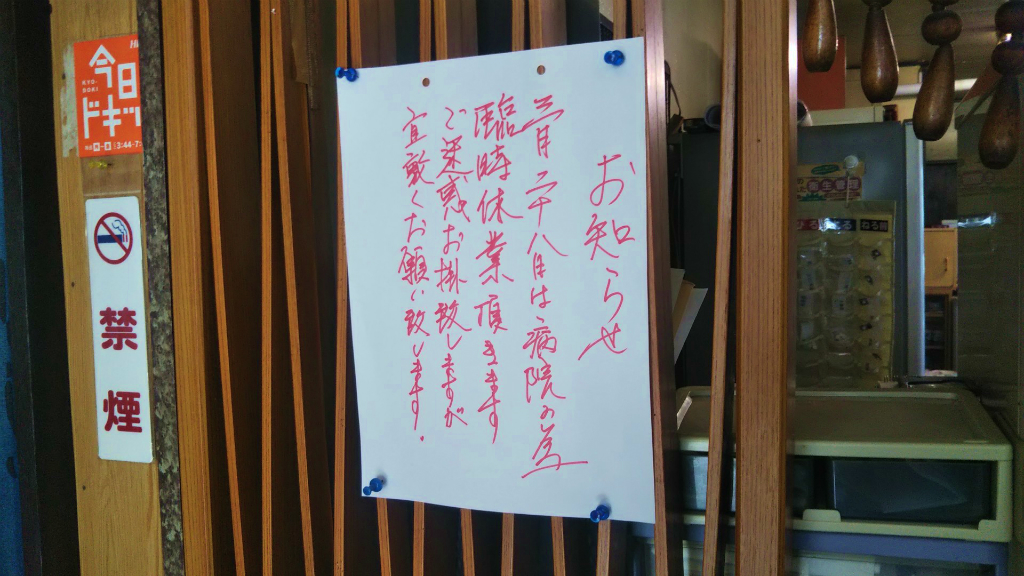 お知らせ
三月二十八日は、病院の為
臨時休業頂きます
ご迷惑お掛致しますが
宜敷くお願い致します.
今日
KYO-
DOKI
ドキッ
3:44-7
禁煙